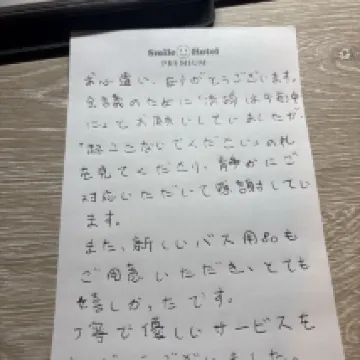 Smile Hotel
PREMIUM
お心遣い、ありがとうございます。
会議のために「清掃は午前中
に」とお願いしていましたが、
「起こさないでください」の札
を見てくださり、静かにご
対応いただいて感謝してい
ます。
また、新しいバス用品も
ご用意いただき、とても
嬉しかったです。
丁寧で優しいサービスを
ありがとうございました。